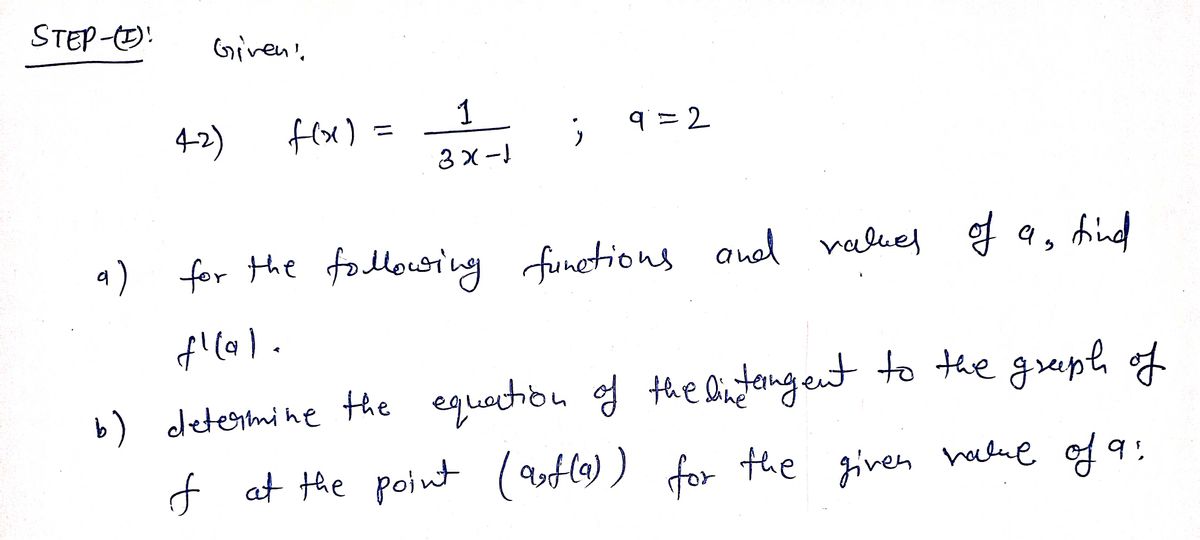 STEP-(I): Given:
42) f(x) = 1 / 3x-1 ; a = 2
a) for the following functions and values of a, find
f'(a).
b) determine the equation of the line tangent to the graph of
f at the point (a, f(a)) for the given value of a: